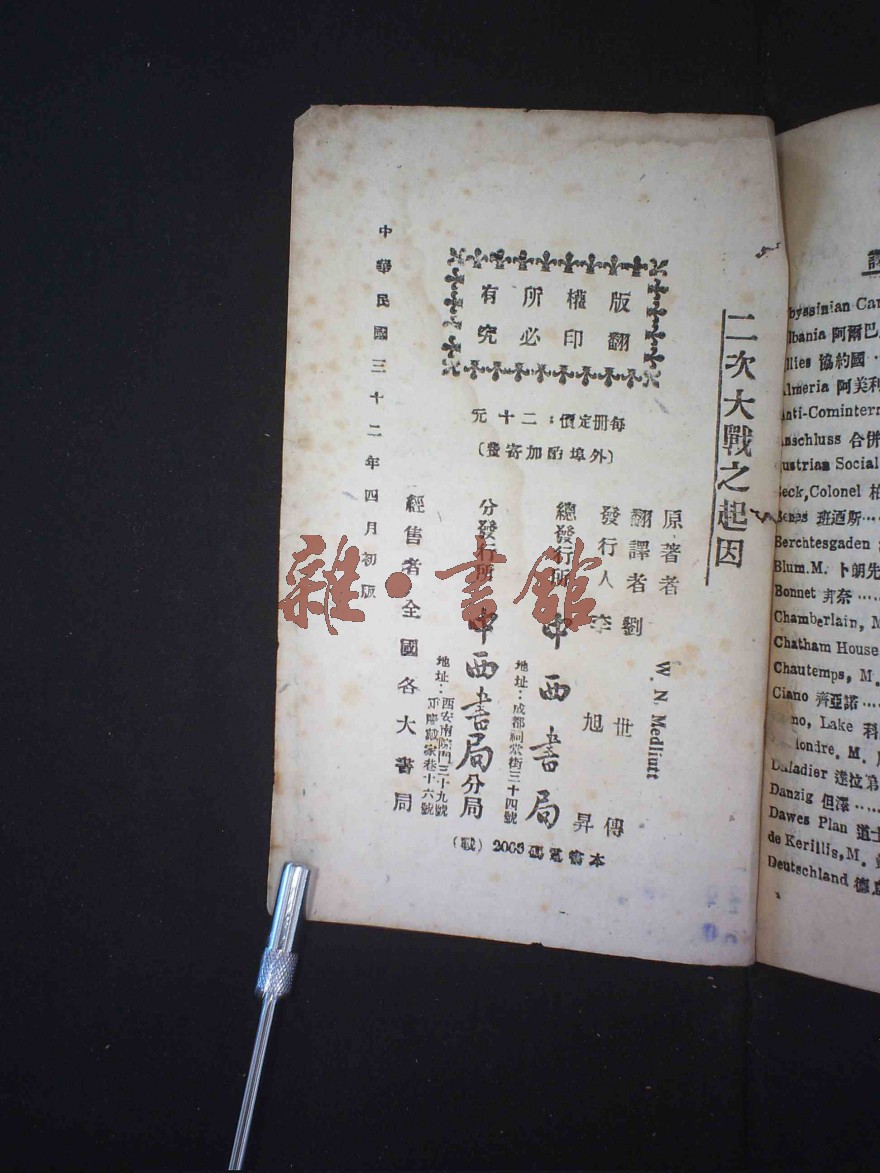 二次大戰之起因
版權所有
翻印必究
每冊定價：二十元
（外埠酌加寄費）
原著者 W. N. Medliutt
翻譯者 劉世傳
發行人 李旭昇
總發行所 中西書局
地址：成都祠堂街三十四號
分發行所 中西書局分局
地址：西安南院門三十九號
重慶戴家巷十六號
經售者 全國各大書局
中華民國三十二年四月初版
本書電碼 2003（戰）
雜·書館
byssinian Can
lbania 阿爾巴
llies 協約國
lmeria 阿美利
nti-Comintern
nschluss 合併
ustrian Social
eck,Colonel 柏
Benes 班迺斯
Berchtesgaden
Blum.M. 卜朗先
Bonnet 邦奈
Chamberlain, M
Chatham House
Chautemps, M.
Ciano 齊亞諾
mo, Lake 科
londre. M.
Daladier 達拉第
Danzig 但澤
Dawes Plan 道士
de Kerillis,M.
Deutschland 德意